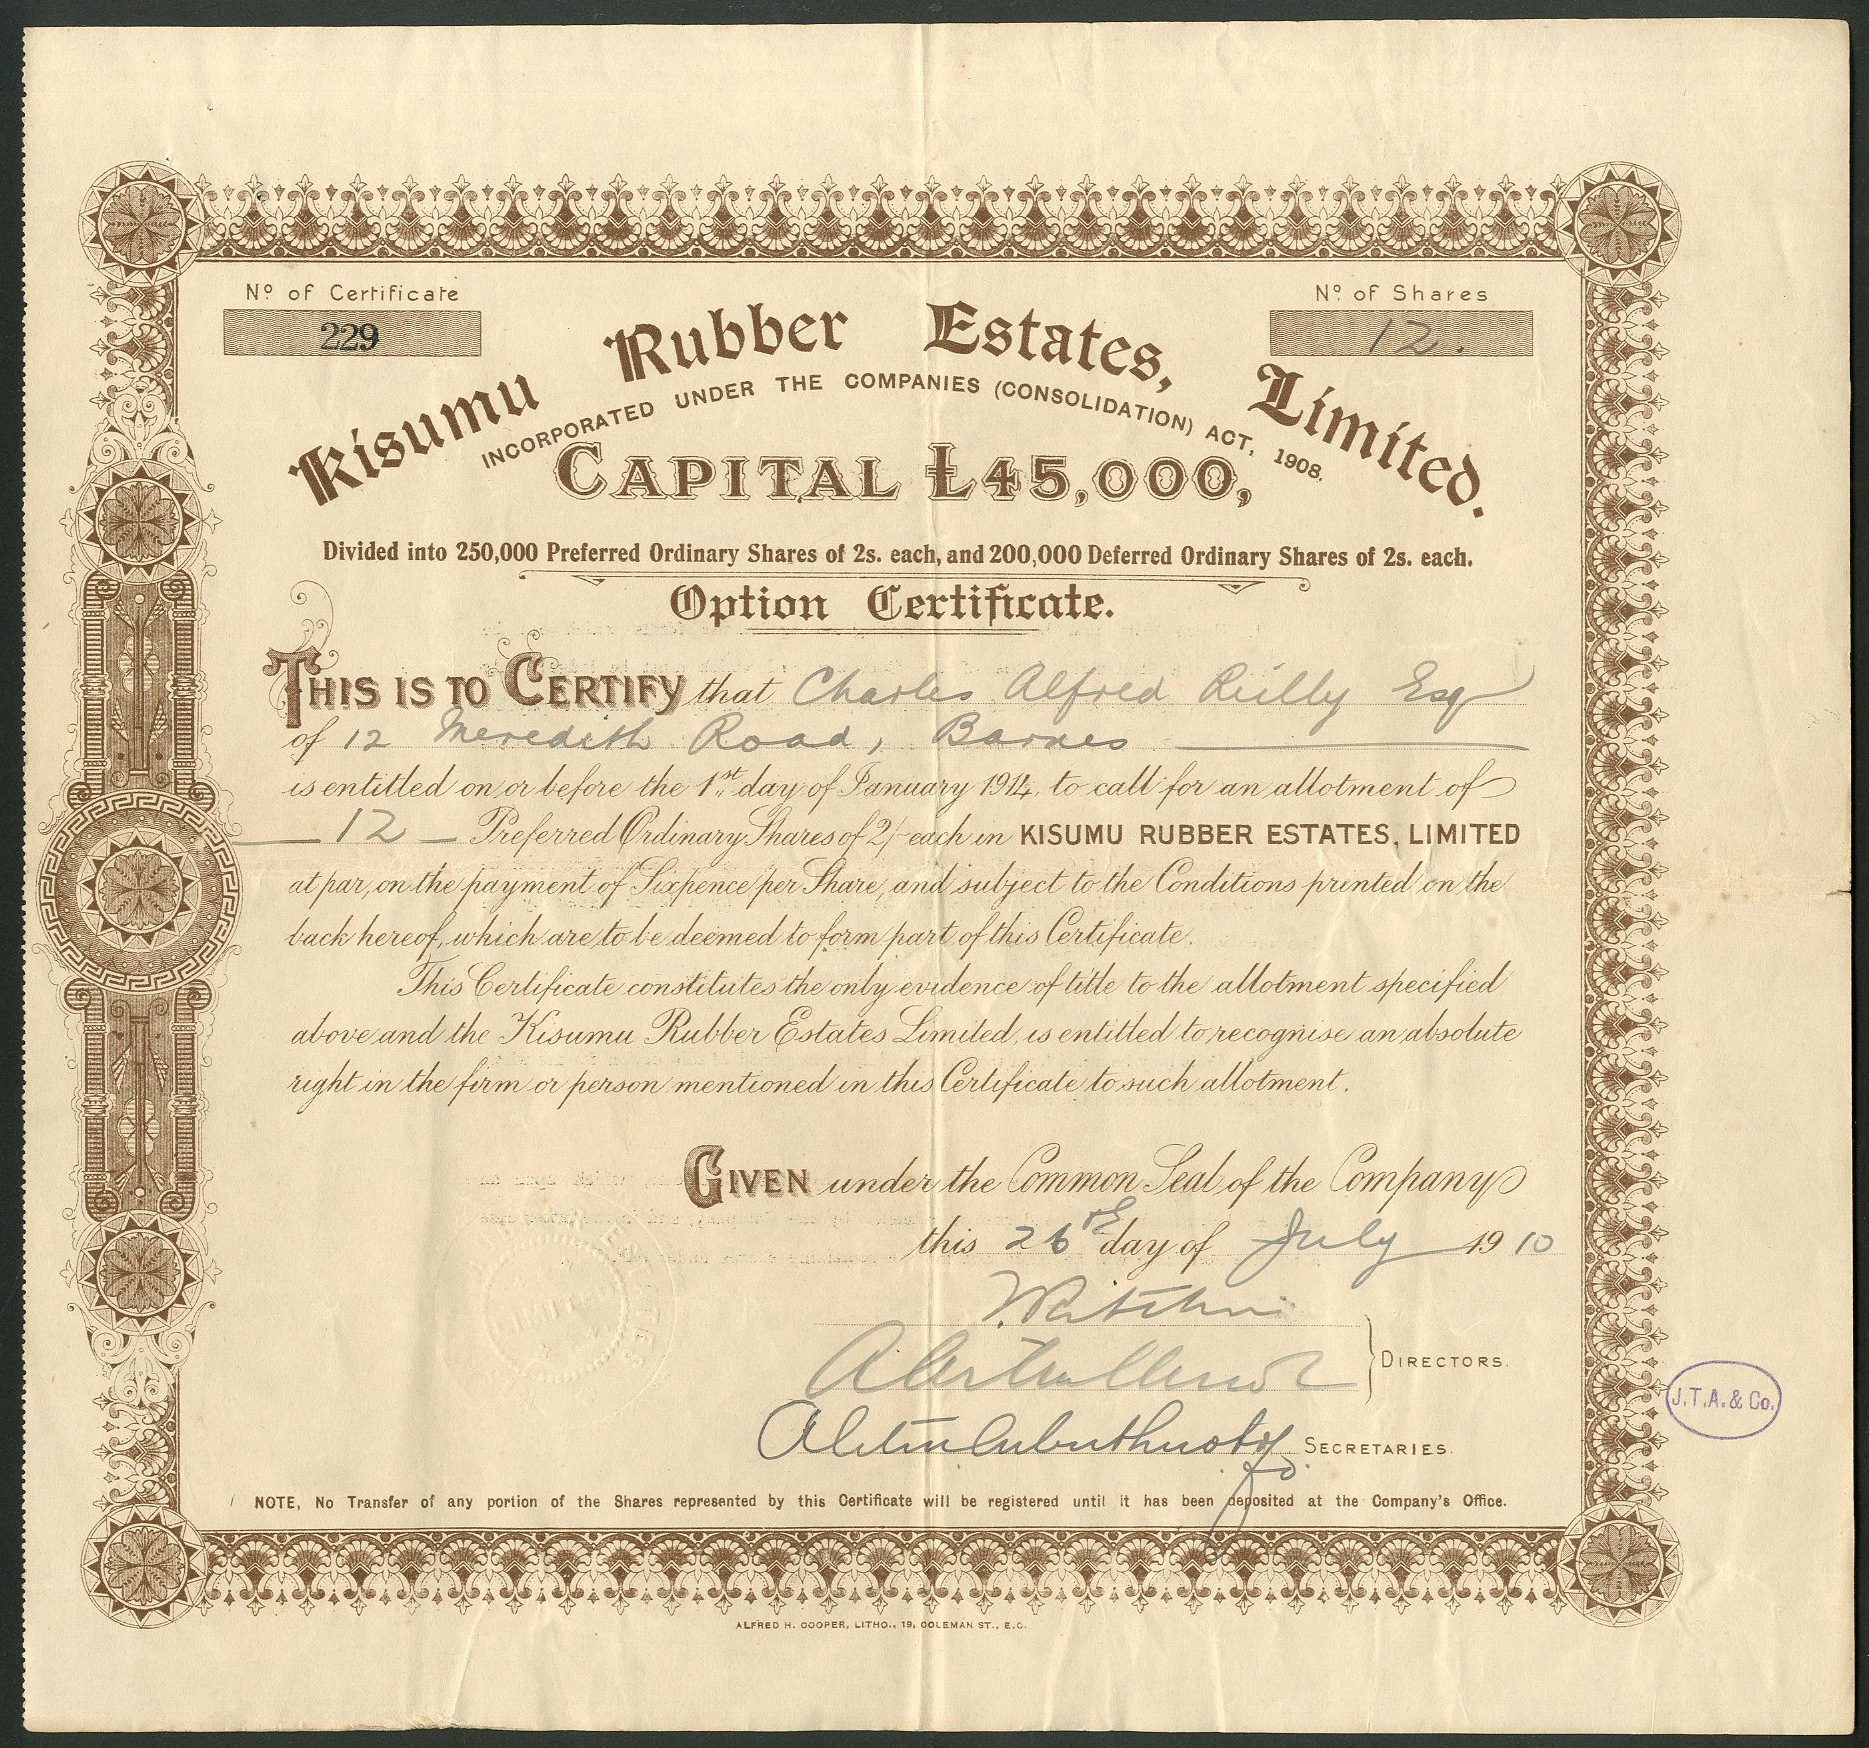 Nº of Certificate
229
Nº of Shares
12.
Kisumu Rubber Estates, Limited.
INCORPORATED UNDER THE COMPANIES (CONSOLIDATION) ACT, 1908.
CAPITAL £45,000,
Divided into 250,000 Preferred Ordinary Shares of 2s. each, and 200,000 Deferred Ordinary Shares of 2s. each.
Option Certificate.
THIS IS TO CERTIFY that Charles Alfred Reilly Esq
of 12 Meredith Road, Barnes
is entitled on or before the 1st day of January 1914, to call for an allotment of
12 Preferred Ordinary Shares of 2/- each in KISUMU RUBBER ESTATES, LIMITED
at par, on the payment of Sixpence per Share, and subject to the Conditions printed on the
back hereof, which are to be deemed to form part of this Certificate.
This Certificate constitutes the only evidence of title to the allotment specified
above and the Kisumu Rubber Estates Limited, is entitled to recognise an absolute
right in the firm or person mentioned in this Certificate to such allotment.
GIVEN under the Common Seal of the Company
this 26th day of July 1910
DIRECTORS.
SECRETARIES.
NOTE, No Transfer of any portion of the Shares represented by this Certificate will be registered until it has been deposited at the Company's Office.
J.T.A. & Co.
ALFRED H. COOPER, LITHO., 19, COLEMAN ST., E.C.